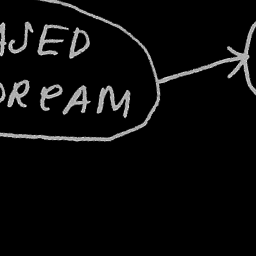 ASED
DREAM